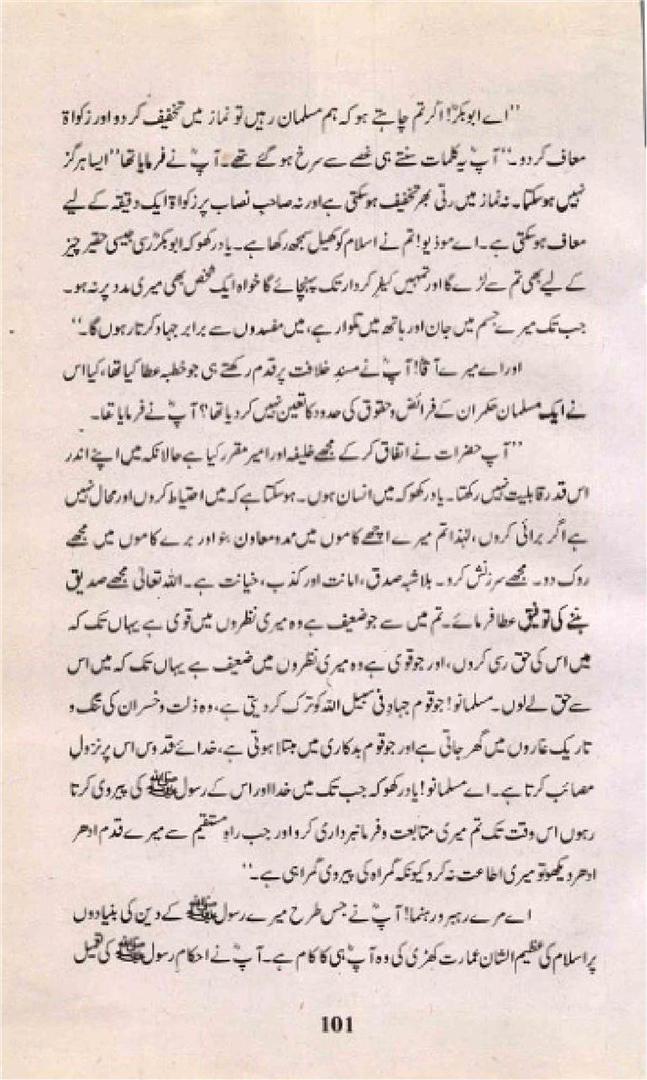 "اے ابوبکرؓ! اگر تم چاہتے ہو کہ ہم مسلمان رہیں تو نماز میں تخفیف کر دو اور زکواۃ
معاف کر دو۔" آپؓ یہ کلمات سنتے ہی غصے سے سرخ ہو گئے تھے۔ آپؓ نے فرمایا تھا "ایسا ہرگز
نہیں ہو سکتا۔ نہ نماز میں رتی بھر تخفیف ہو سکتی ہے اور نہ صاحب نصاب پر زکواۃ ایک دقیقہ کے لیے
معاف ہو سکتی ہے۔ اے موذیو! تم نے اسلام کو کھیل سمجھ رکھا ہے۔ یاد رکھو کہ ابوبکرؓ رسی جیسی حقیر چیز
کے لیے بھی تم سے لڑے گا اور تمہیں کیفر کردار تک پہنچائے گا خواہ ایک شخص بھی میری مدد پر نہ ہو۔
جب تک میرے جسم میں جان اور ہاتھ میں تلوار ہے، میں مفسدوں سے برابر جہاد کرتا رہوں گا۔"
اور اے میرے آقاؓ! آپؓ نے مسندِ خلافت پر قدم رکھتے ہی جو خطبہ عطا کیا تھا، کیا اس
نے ایک مسلمان حکمران کے فرائض و حقوق کی حدود کا تعین نہیں کر دیا تھا؟ آپؓ نے فرمایا تھا۔
"آپ حضرات نے اتفاق کر کے مجھے خلیفہ اور امیر مقرر کیا ہے حالانکہ میں اپنے اندر
اس قدر قابلیت نہیں رکھتا۔ یاد رکھو کہ میں انسان ہوں۔ ہو سکتا ہے کہ میں احتیاط کروں اور محال نہیں
ہے اگر برائی کروں، لہٰذا تم میرے اچھے کاموں میں مدد و معاون بنو اور برے کاموں میں مجھے
روک دو۔ مجھے سرزنش کرو۔ بلاشبہ صدق، امانت اور کذب، خیانت ہے۔ اللہ تعالیٰ مجھے صدیق
بننے کی توفیق عطا فرمائے۔ تم میں سے جو ضعیف ہے وہ میری نظروں میں قوی ہے یہاں تک کہ
میں اس کی حق رسی کروں، اور جو قوی ہے وہ میری نظروں میں ضعیف ہے یہاں تک کہ میں اس
سے حق لے لوں۔ مسلمانو! جو قوم جہاد فی سبیل اللہ کو ترک کر دیتی ہے، وہ ذلت و خسران کی تنگ و
تاریک غاروں میں گھر جاتی ہے اور جو قوم بدکاری میں مبتلا ہوتی ہے، خدائے قدوس اس پر نزولِ
مصائب کرتا ہے۔ اے مسلمانو! یاد رکھو کہ جب تک میں خدا اور اس کے رسول ﷺ کی پیروی کرتا
رہوں اس وقت تک تم میری متابعت و فرمانبرداری کرو اور جب راہِ مستقیم سے میرے قدم ادھر
ادھر دیکھو تو میری اطاعت نہ کرو کیونکہ گمراہ کی پیروی گمراہی ہے۔"
اے مرے رہبر و رہنما! آپؓ نے جس طرح میرے رسول ﷺ کے دین کی بنیادوں
پر اسلام کی عظیم الشان عمارت کھڑی کی وہ آپؓ ہی کا کام ہے۔ آپؓ نے احکام رسول ﷺ کی تعمیل
101